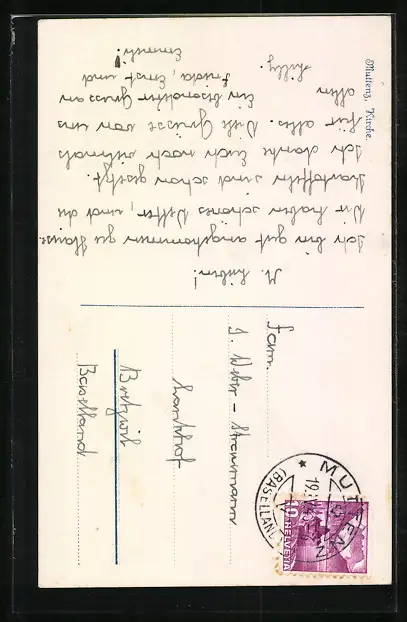 Muttenz, Kirche.
M. Lieben!
Ich bin gut angekommen zu Hause.
Wir haben schönes Wetter, und die
Kartoffeln sind schon gesetzt.
Ich danke Euch noch vielmals
für alles. Viele Grüsse von uns
allen Ein besonderer Gruss an
Lilly. Frieda, Ernst und
Emmeli!
Fam.
J. Weber-Straumann
Landhof
Bretzwil
Baselland
MUTTENZ
(BASELLAND)
10 HELVETIA